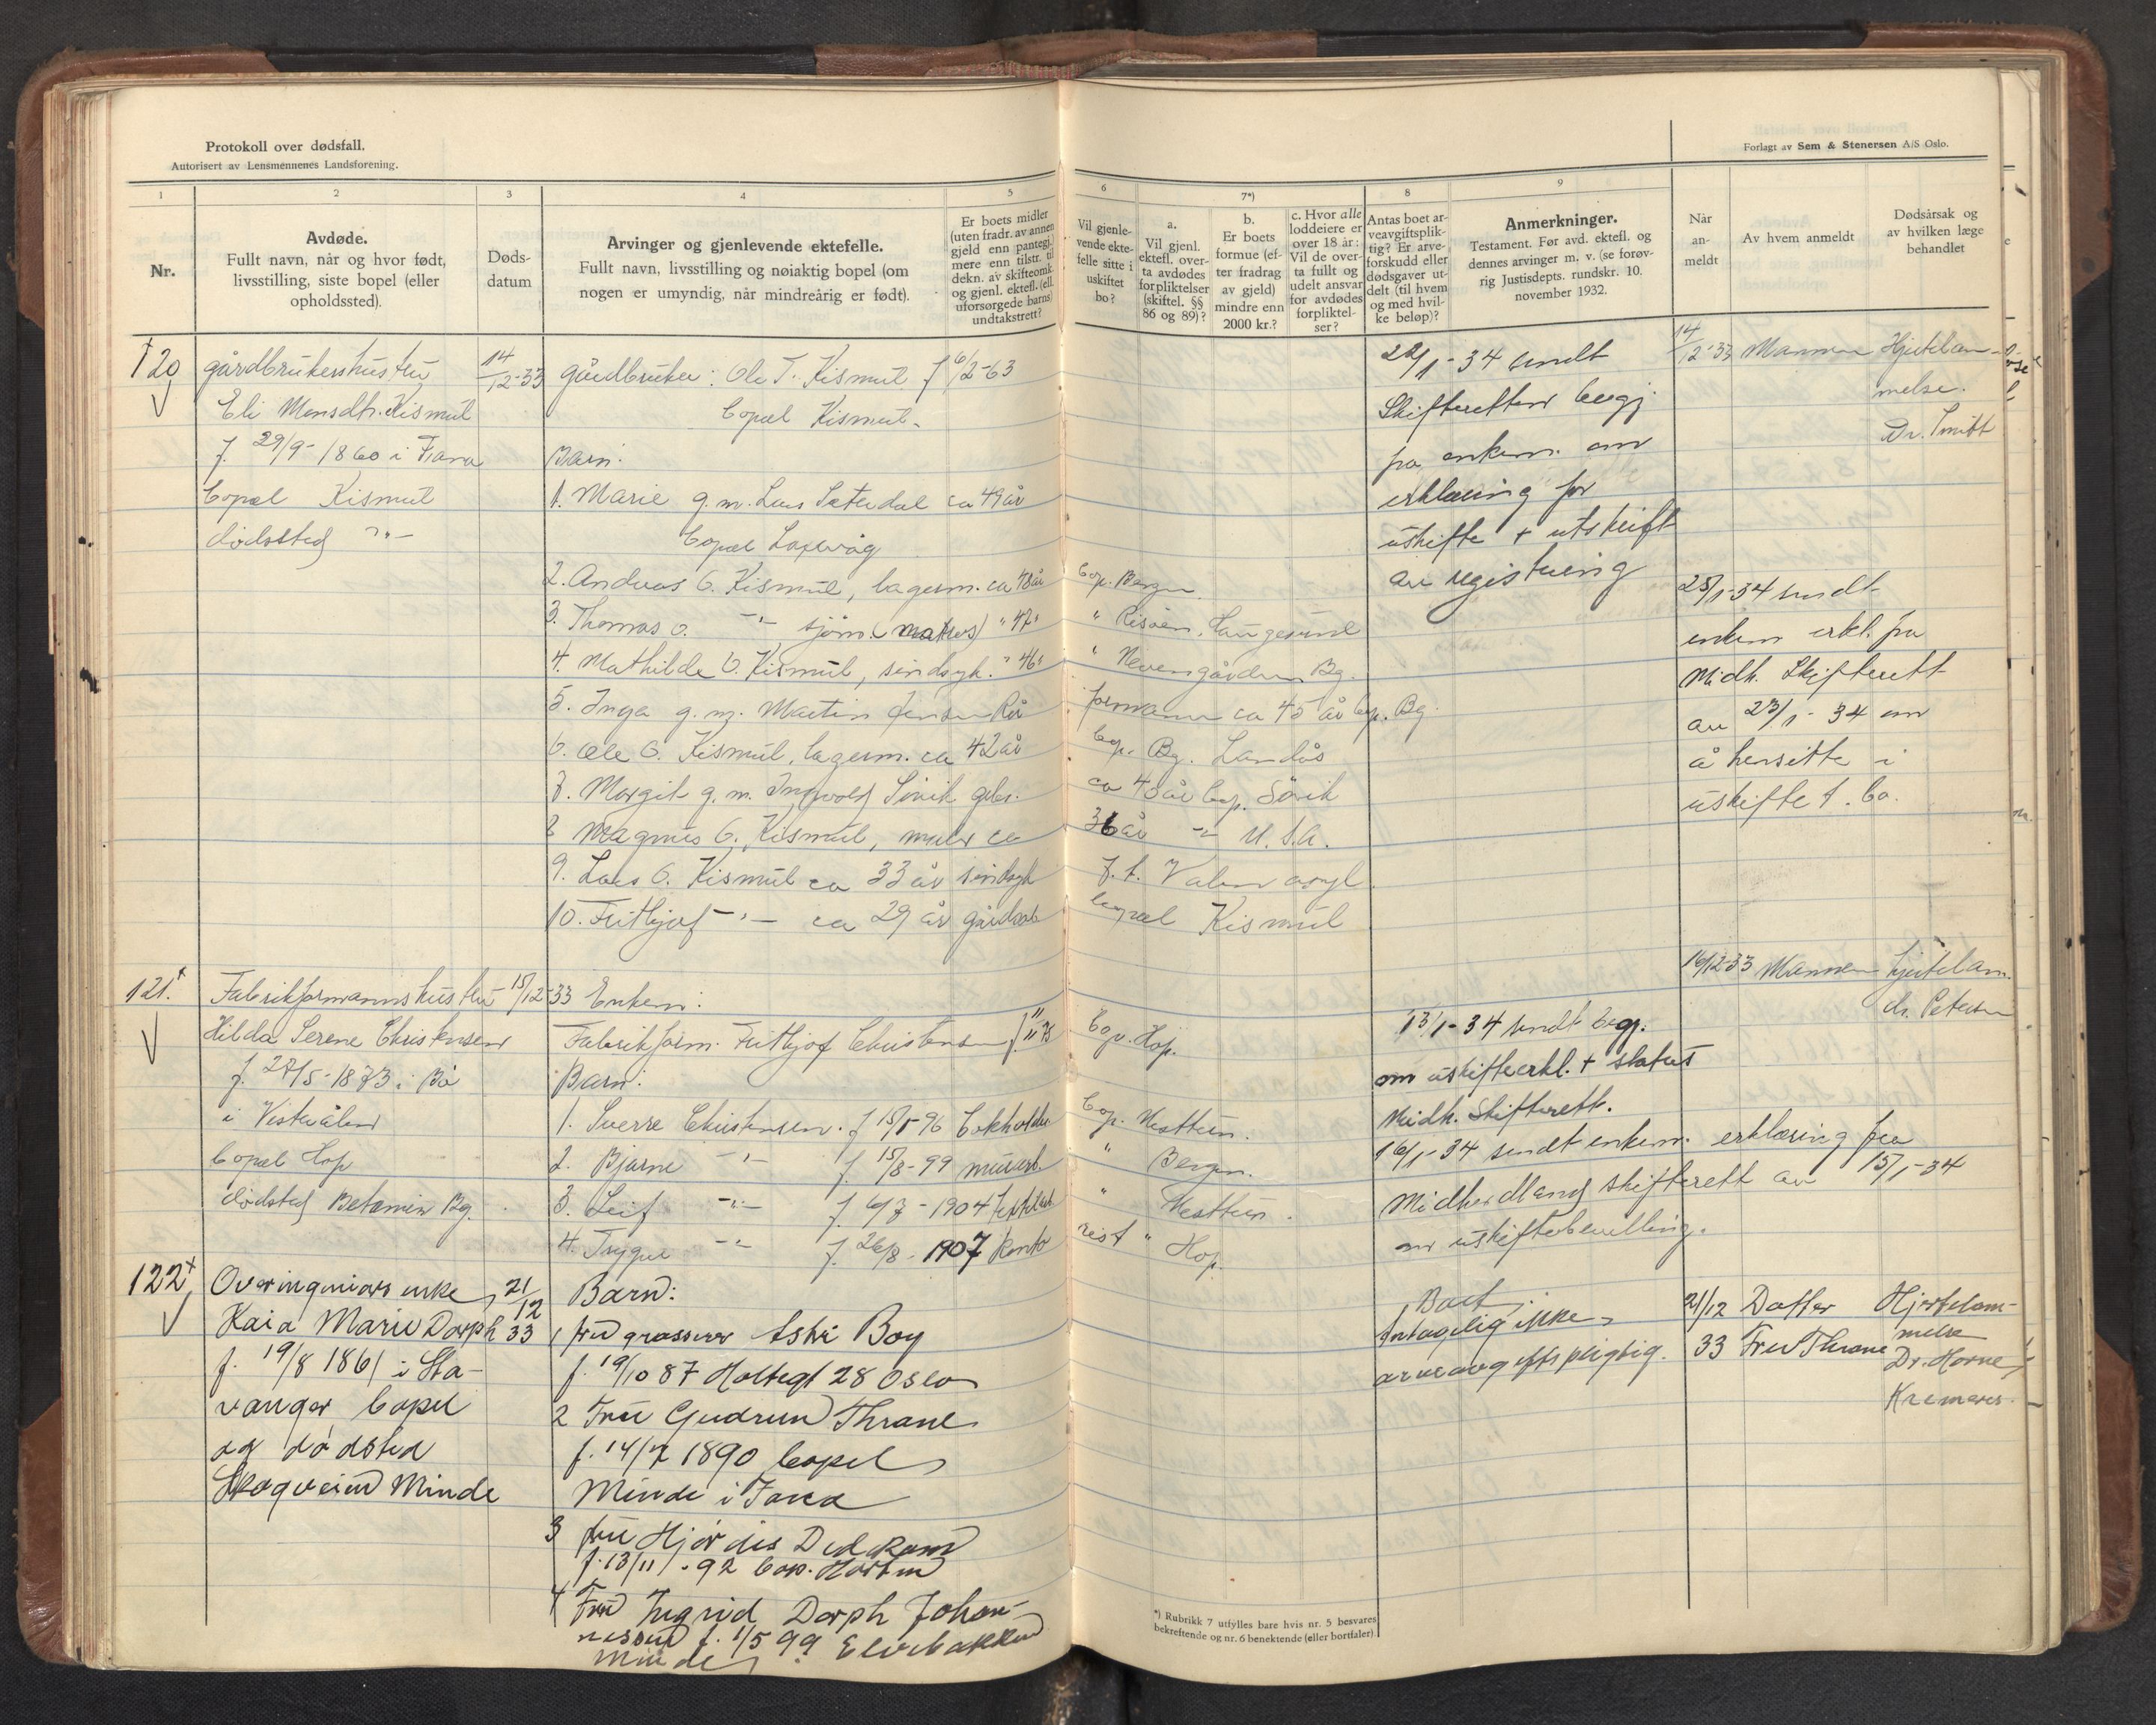 Protokoll over dødsfall.
Autorisert av Lensmennenes Landsforening.
Forlagt av Sem & Stenersen A/S Oslo.
1 2 3 4 5 6 7*) 8 9
Nr.
Avdøde.
Fullt navn, når og hvor født,
livsstilling, siste bopel (eller
opholdssted).
Døds-
datum
Arvinger og gjenlevende ektefelle.
Fullt navn, livsstilling og nøiaktig bopel (om
nogen er umyndig, når mindreårig er født).
Er boets midler
(uten fradr. av annen
gjeld enn pantegj.)
mere enn tilstr. til
dekn. av skifteomk.
og gjenl. ektef. (ell.
uforsørgede barns)
undtakstrett?
Vil gjenle-
vende ekte-
felle sitte i
uskiftet
bo?
a.
Vil gjenl.
ektefl. over-
ta avdødes
forpliktelser
(skiftel. §§
86 og 89)?
b.
Er boets
formue (ef-
ter fradrag
av gjeld)
mindre enn
2000 kr.?
c. Hvor alle
loddeiere er
over 18 år:
Vil de over-
ta fullt og
udelt ansvar
for avdødes
forpliktel-
ser?
Antas boet ar-
veavgiftsplik-
tig? Er arve-
forskudd eller
dødsgaver ut-
delt (til hvem
og med hvil-
ke beløp)?
Anmerkninger.
Testament. Før avd. ektefl. og
dennes arvinger m. v. (se forøv-
rig Justisdepts. rundskr. 10.
november 1932.
Når
an-
meldt
Av hvem anmeldt
Dødsårsak og
av hvilken læge
behandlet
120
gårdbrukershustru
Eli Monsdtr. Kismul
f. 29/9-1860 i Fana
bopæl Kismul
dødssted -"-
14/12-33
gårdbruker: Ole T. Kismul f 6/2-63
bopæl Kismul.
Barn:
1. Marie g.m. Lars Sæterdal ca 49 år
bopæl Laxevåg
2. Andreas O. Kismul, lagerm. ca 48 år bop. Bergen.
3. Thomas O. -"- sjøm. (matros) " 47 " " Risøen, Haugesund
4. Mathilde O. Kismul, sindsyk. " 46 " " Nevengården Bg.
5. Inga g.m. Martin Jensen Rå formann ca 45 år bop. Bg.
6. Ole O. Kismul, lagerm. ca 42 år bop. Bg. Landås
7. Margit g.m. Ingvald Søvik gbr. ca 40 år bop. Søvik
8 Magnus O. Kismul, murer ca 36 år -"- U.S.A.
9. Lars O. Kismul ca 33 år sindsyk f.t. Valen asyl.
10. Frithjof -"- ca 29 år gårdsarb bopæl Kismul
22/1-34 sendt
Skifteretten begj.
fra enkem. om
erklæring for
uskifte + utskrift
av registrering
14/12-33 Mannen Hjertelam-
melse.
Dr. Smitt
25/1-34 sendt
enkem erkl. fra
Midh. Skifterett
av 23/1-34 om
å hensitte i
uskiftet bo.
121.
Fabrikformannshustru
Hilda Serene Christensen
f. 27/5-1873 i Bø
i Vesterålen
bopæl Hop
dødssted Betanien Bg.
15/12-33
Enkem:
Fabrikform. Frithjof Christensen bop. Hop.
Barn:
1. Sverre Christensen. f 15/5-96 bokholder bop. Nesttun.
2. Bjarne -"- f. 15/8-99 murarb. " Bergen.
3. Leif -"- f. 6/7-1904 textilarb " Nesttun.
4. Trygve -"- f. 26/8-1907 kontorist " Hop.
13/1-34 sendt begj.
om uskifteerkl. + status
Midh. skifterett.
16/1-34 sendt enkem. erklæring fra
Midhordland skifterett av 15/1-34
om uskiftebevilling.
16/12-33 Mannen hjertelam.
dr. Petersen
122
Overingeniørs enke
Kaia Marie Dorph
f. 19/8 1861 i Sta-
vanger bopel
og dødsted
Skogveien Minde
21/12 33
Barn:
1 fru grosserer Astri Boy
f. 19/10 87 Holtegt 28 Oslo
2 Fru Gudrun Thrane
f. 14/7 1890 bopel
Minde i Fana
3 fru Hjørdis Dedekam
f. 13/11-92 bop. Horten
4 Fru Ingrid Dorph Johan-
nessen f. 1/5 99 Elvebakken
Minde
Boet
antagelig ikke
arveavgiftspligtig.
21/12 33 Datter
Fru Thrane
Hjertelam-
melse
Dr. Horne
Kremeres.
*) Rubrikk 7 utfylles bare hvis nr. 5 besvares
bekreftende og nr. 6 benektende (eller bortfaler).